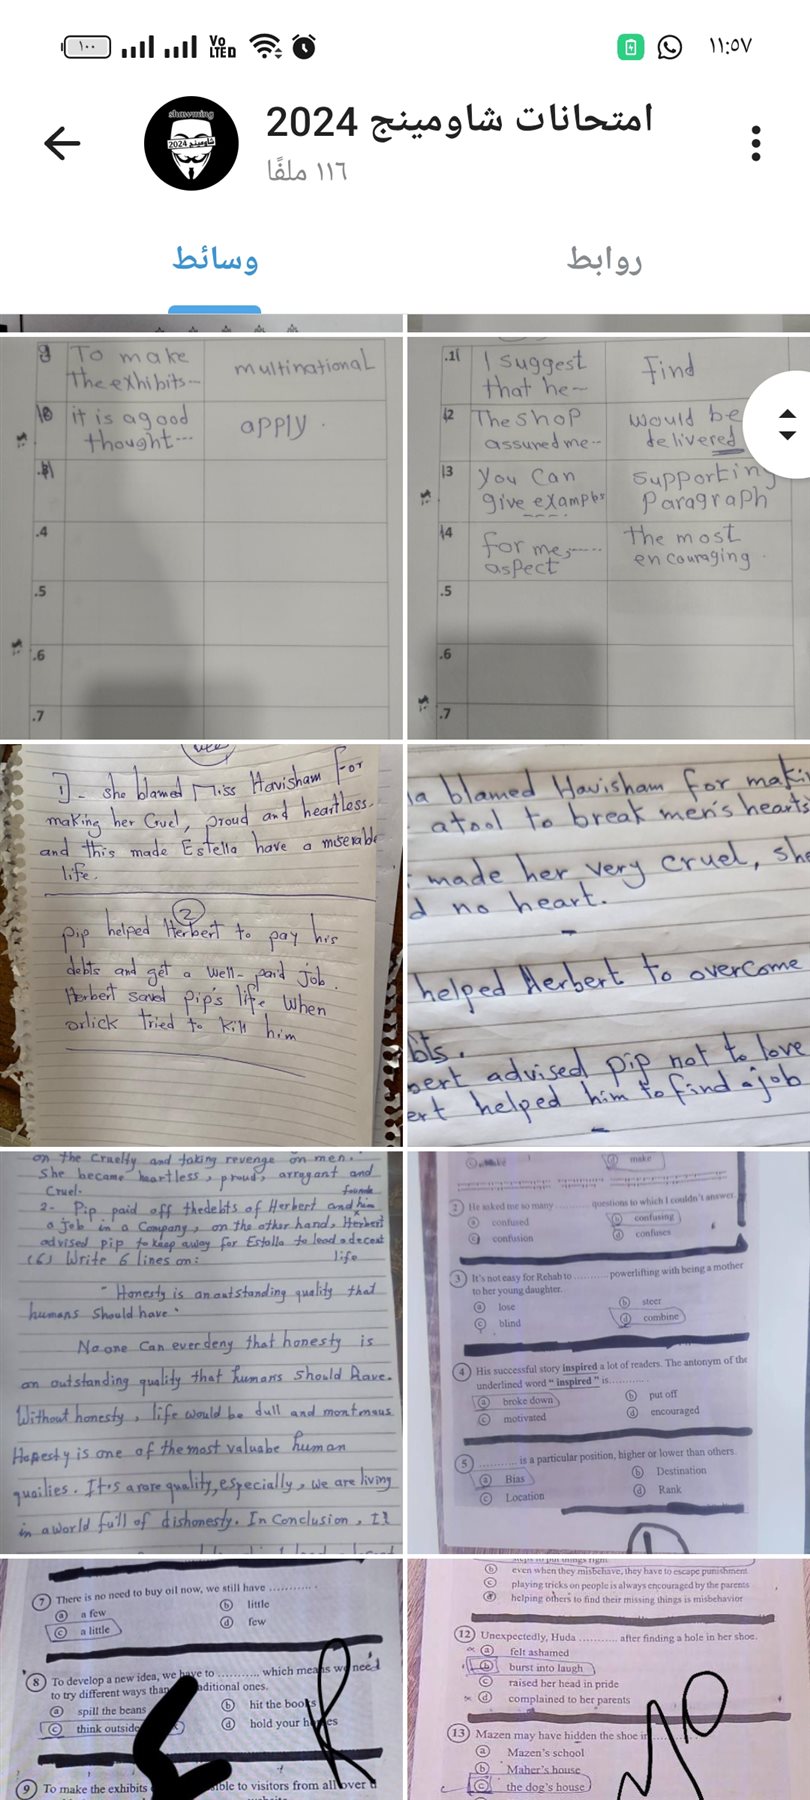 ١٠٠
VoLTED
١١:٥٧
امتحانات شاومينج 2024
shawming
شاومينج 2024
١١٦ ملفًا
وسائط
روابط
9 To make the exhibits-- multinational
10 it is a good thought--- apply.
.4
.5
.6
.7
.11 I suggest that he~ find
12 The shop assured me-- would be delivered
13 you can give examples supporting paragraph
14 for me,---- aspect the most encouraging.
.5
.6
.7
1]- she blamed Miss Havisham for
making her Cruel, proud and heartless.
and this made Estella have a miserable
life.
2
pip helped Herbert to pay his
debts and get a well-paid job.
Herbert saved pip's life when
orlick tried to kill him
a blamed Havisham for maki
a tool to break men's hearts
made her very cruel, she
d no heart.
helped Herbert to overcome
bts.
bert advised pip not to love
ert helped him to find a job
on the Cruelty and taking revenge on men.
She became heartless, proud, arragant and
Cruel.
2- Pip paid off thedebts of Herbert and him
a job in a Company, on the other hand, Herbert
advised pip to keep away for Estalla to lead a decent
life
(6) Write 6 lines on:
"Honesty is an outstanding quality that
humans should have"
No one Can ever deny that honesty is
an outstanding quality that humans should have.
Without honesty, life would be dull and montonous
Honesty is one of the most valuabe human
quailies. It's a rare quality, especially, we are living
in a world full of dishonesty. In Conclusion, I'll
d make
2 He asked me so many .......... questions to which I couldn't answer.
a confused b confusing
c confusion d confuses
3 It's not easy for Rehab to .......... powerlifting with being a mother
to her young daughter.
a lose b steer
c blind d combine
4 His successful story inspired a lot of readers. The antonym of the
underlined word "inspired" is..........
a broke down b put off
c motivated d encouraged
5 .......... is a particular position, higher or lower than others.
a Bias b Destination
c Location d Rank
7 There is no need to buy oil now, we still have ..........
a a few b little
c a little d few
8 To develop a new idea, we have to .......... which means we need
to try different ways than aditional ones.
a spill the beans b hit the books
c think outside d hold your
9 To make the exhibits ible to visitors from all over
steps to put things right
b even when they misbehave, they have to escape punishment
c playing tricks on people is always encouraged by the parents
d helping others to find their missing things is misbehavior
12 Unexpectedly, Huda .......... after finding a hole in her shoe.
a felt ashamed
b burst into laugh
c raised her head in pride
d complained to her parents
13 Mazen may have hidden the shoe in
a Mazen's school
b Maher's house
c the dog's house